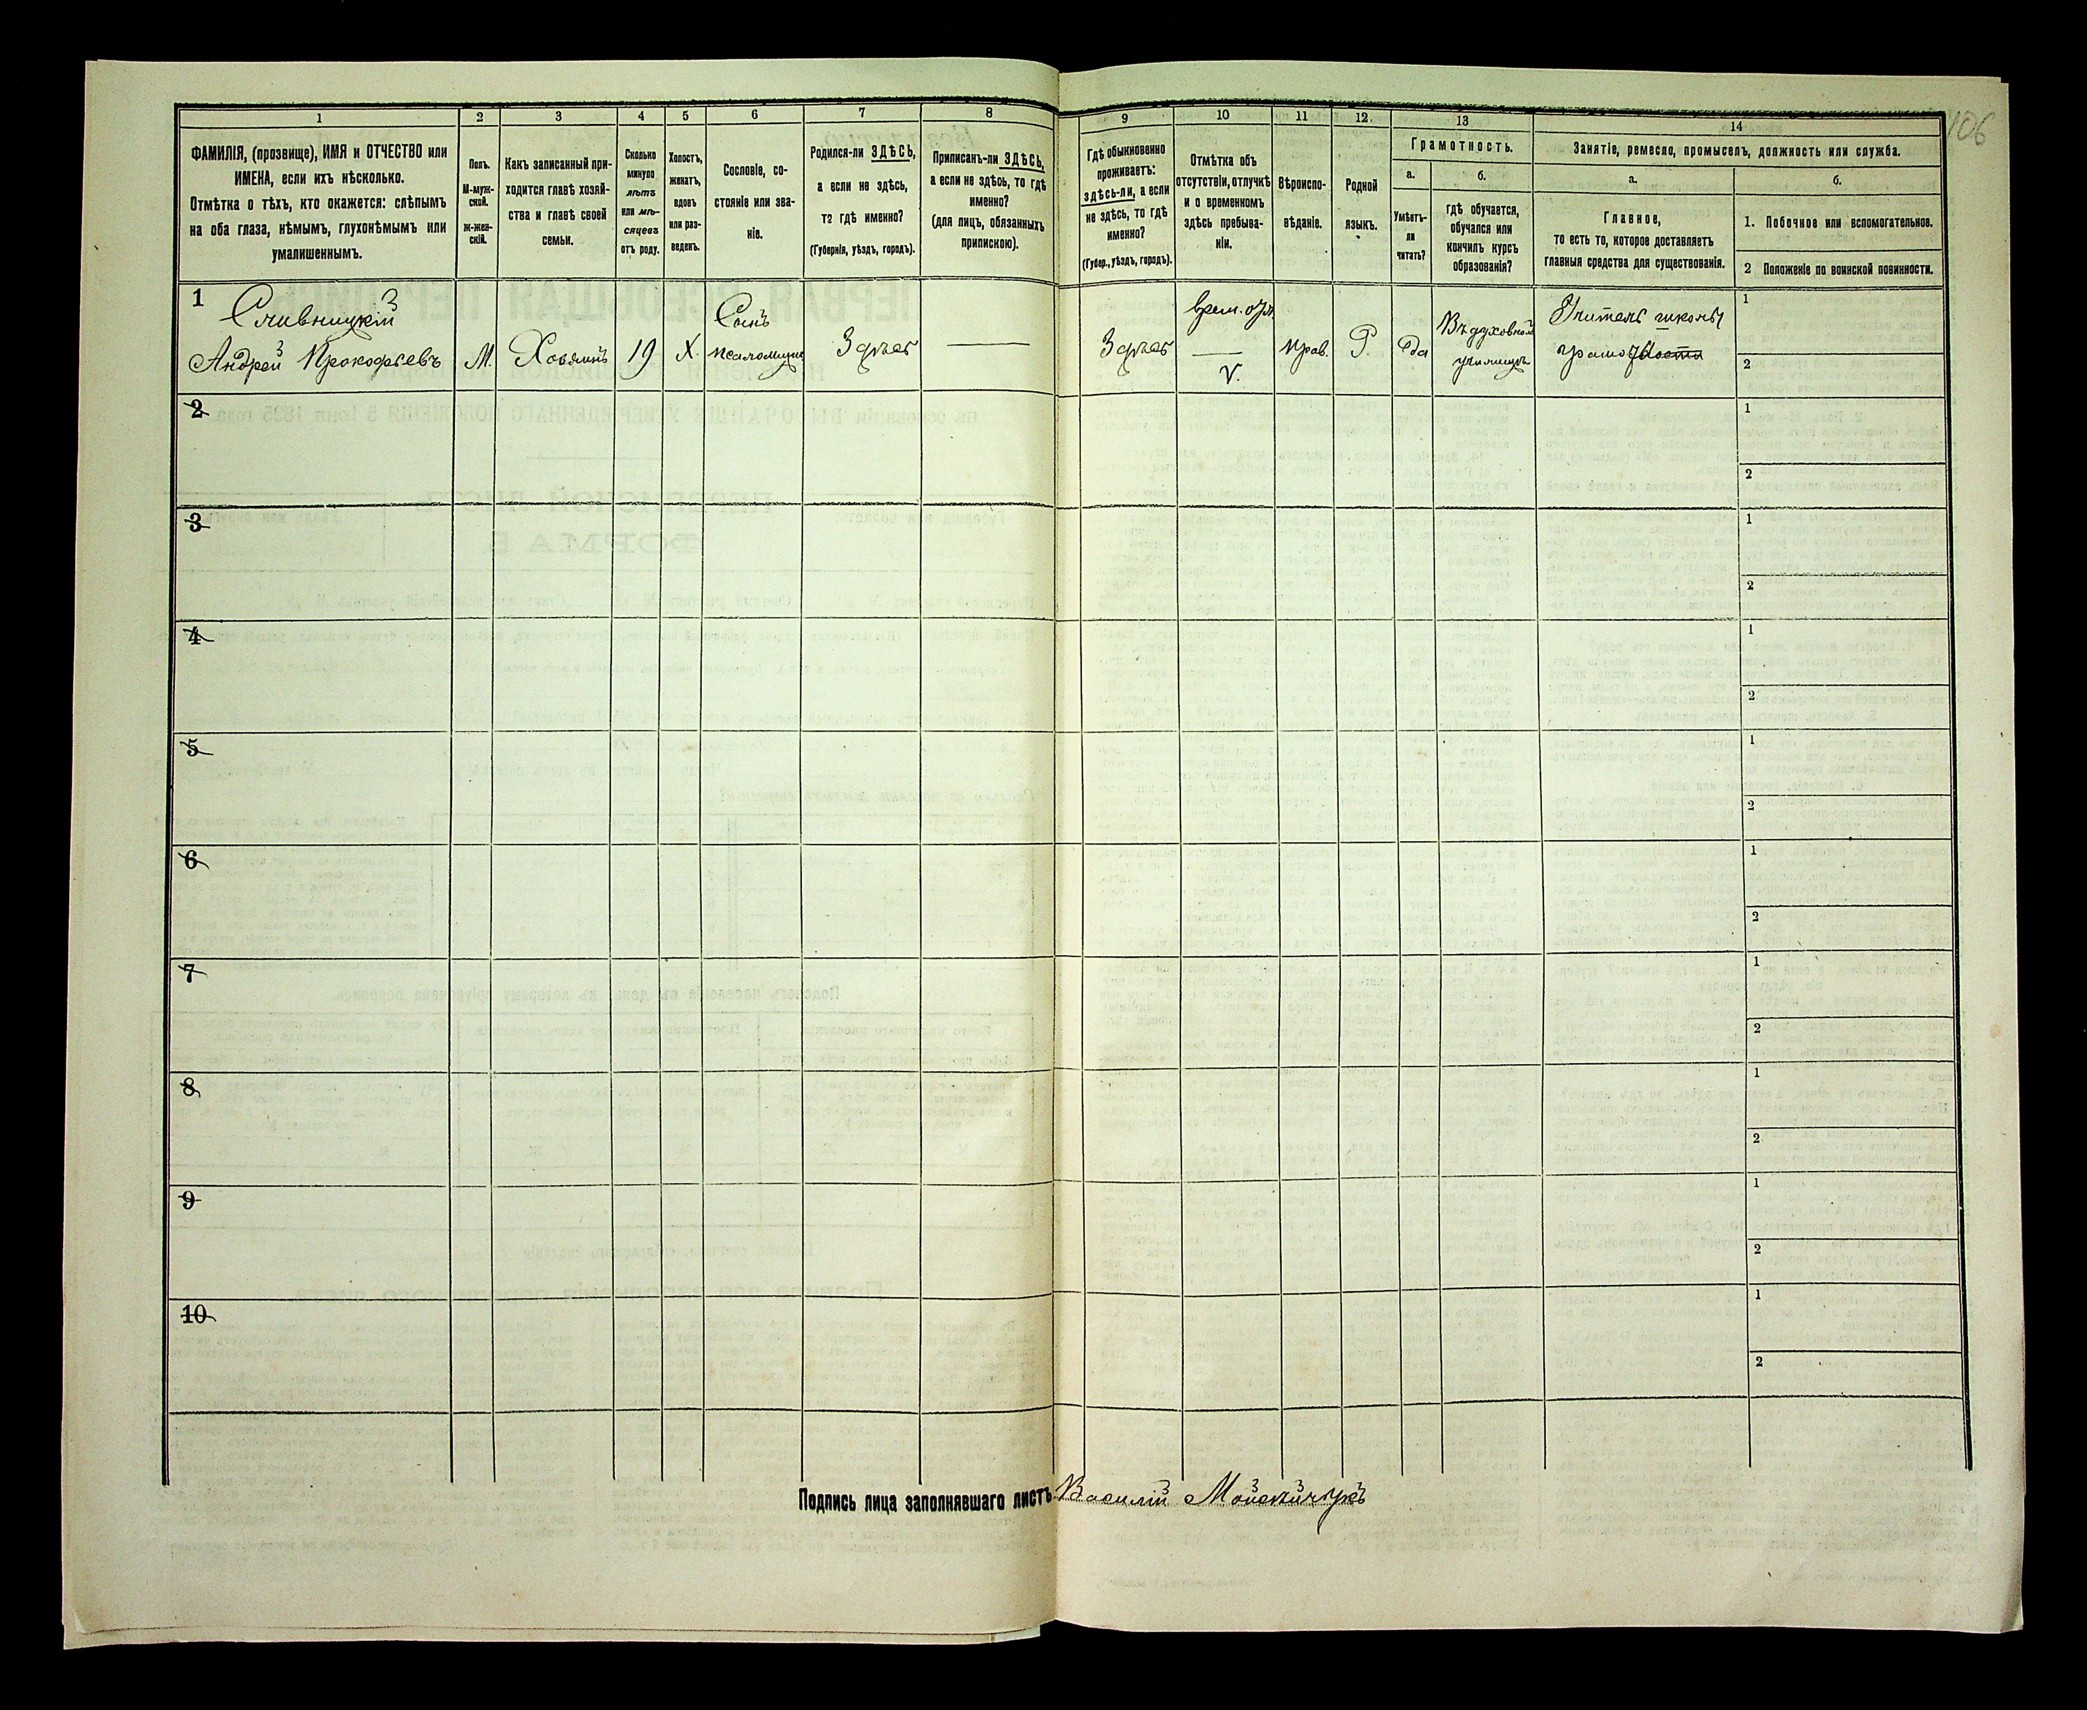 106
1 2 3 4 5 6 7 8 9 10 11 12 13 14
ФАМИЛІЯ, (прозвище), ИМЯ и ОТЧЕСТВО или
ИМЕНА, если ихъ нѣсколько.
Отмѣтка о тѣхъ, кто окажется: слѣпымъ
на оба глаза, нѣмымъ, глухонѣмымъ или
умалишеннымъ.
Полъ.
М-муж-
ской.
ж-жен-
скій.
Какъ записанный при-
ходится главѣ хозяй-
ства и главѣ своей
семьи.
Сколько
минуло
лѣтъ
или мѣ-
сяцевъ
отъ роду.
Холостъ,
женатъ,
вдовъ
или раз-
веденъ.
Сословіе, со-
стояніе или зва-
ніе.
Родился-ли ЗДѢСЬ,
а если не здѣсь,
то гдѣ именно?
(Губернія, уѣздъ, городъ).
Приписанъ-ли ЗДѢСЬ,
а если не здѣсь, то гдѣ
именно?
(для лицъ, обязанныхъ
припискою).
Гдѣ обыкновенно
проживаетъ:
здѣсь-ли, а если
не здѣсь, то гдѣ
именно?
(Губер., уѣздъ, городъ).
Отмѣтка объ
отсутствіи, отлучкѣ
и о временномъ
здѣсь пребыва-
ніи.
Вѣроиспо-
вѣданіе.
Родной
языкъ.
Грамотность.
а.
Умѣетъ-
ли
читать?
б.
гдѣ обучается,
обучался или
кончилъ курсъ
образованія?
Занятіе, ремесло, промыселъ, должность или служба.
а.
Главное,
то есть то, которое доставляетъ
главныя средства для существованія.
б.
1. Побочное или вспомогательное.
2 Положеніе по воинской повинности.
1 Сливницкій
Андрей Прокофьевъ
М.
Хозяинъ
19
Х.
Сынъ
псаломщика
Здѣсь
—
Здѣсь
врем. отл.
—
V.
Прав.
Р.
Да
Въ духовномъ
училищѣ
Учитель школы
грамоты
1
2
2
1
2
3
1
2
4
1
2
5
1
2
6
1
2
7
1
2
8
1
2
9
1
2
10
1
2
Подпись лица заполнявшаго листъ Василій